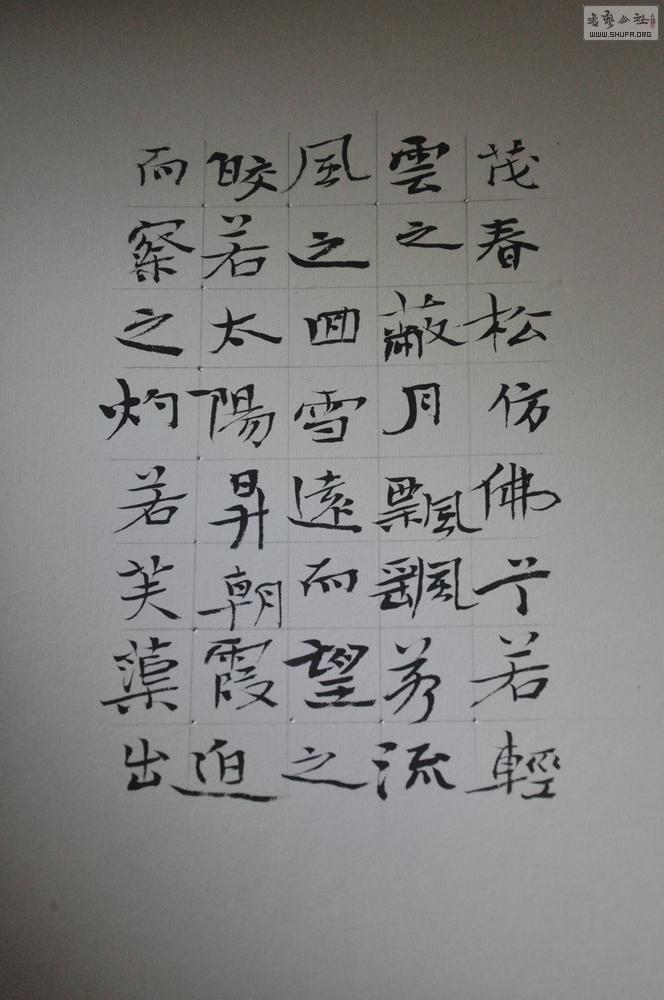 茂春松仿佛兮若輕
雲之蔽月飄颻兮流
風之回雪遠而望之
皎若太陽昇朝霞迫
而察之灼若芙蕖出
WWW.SHUFA.ORG